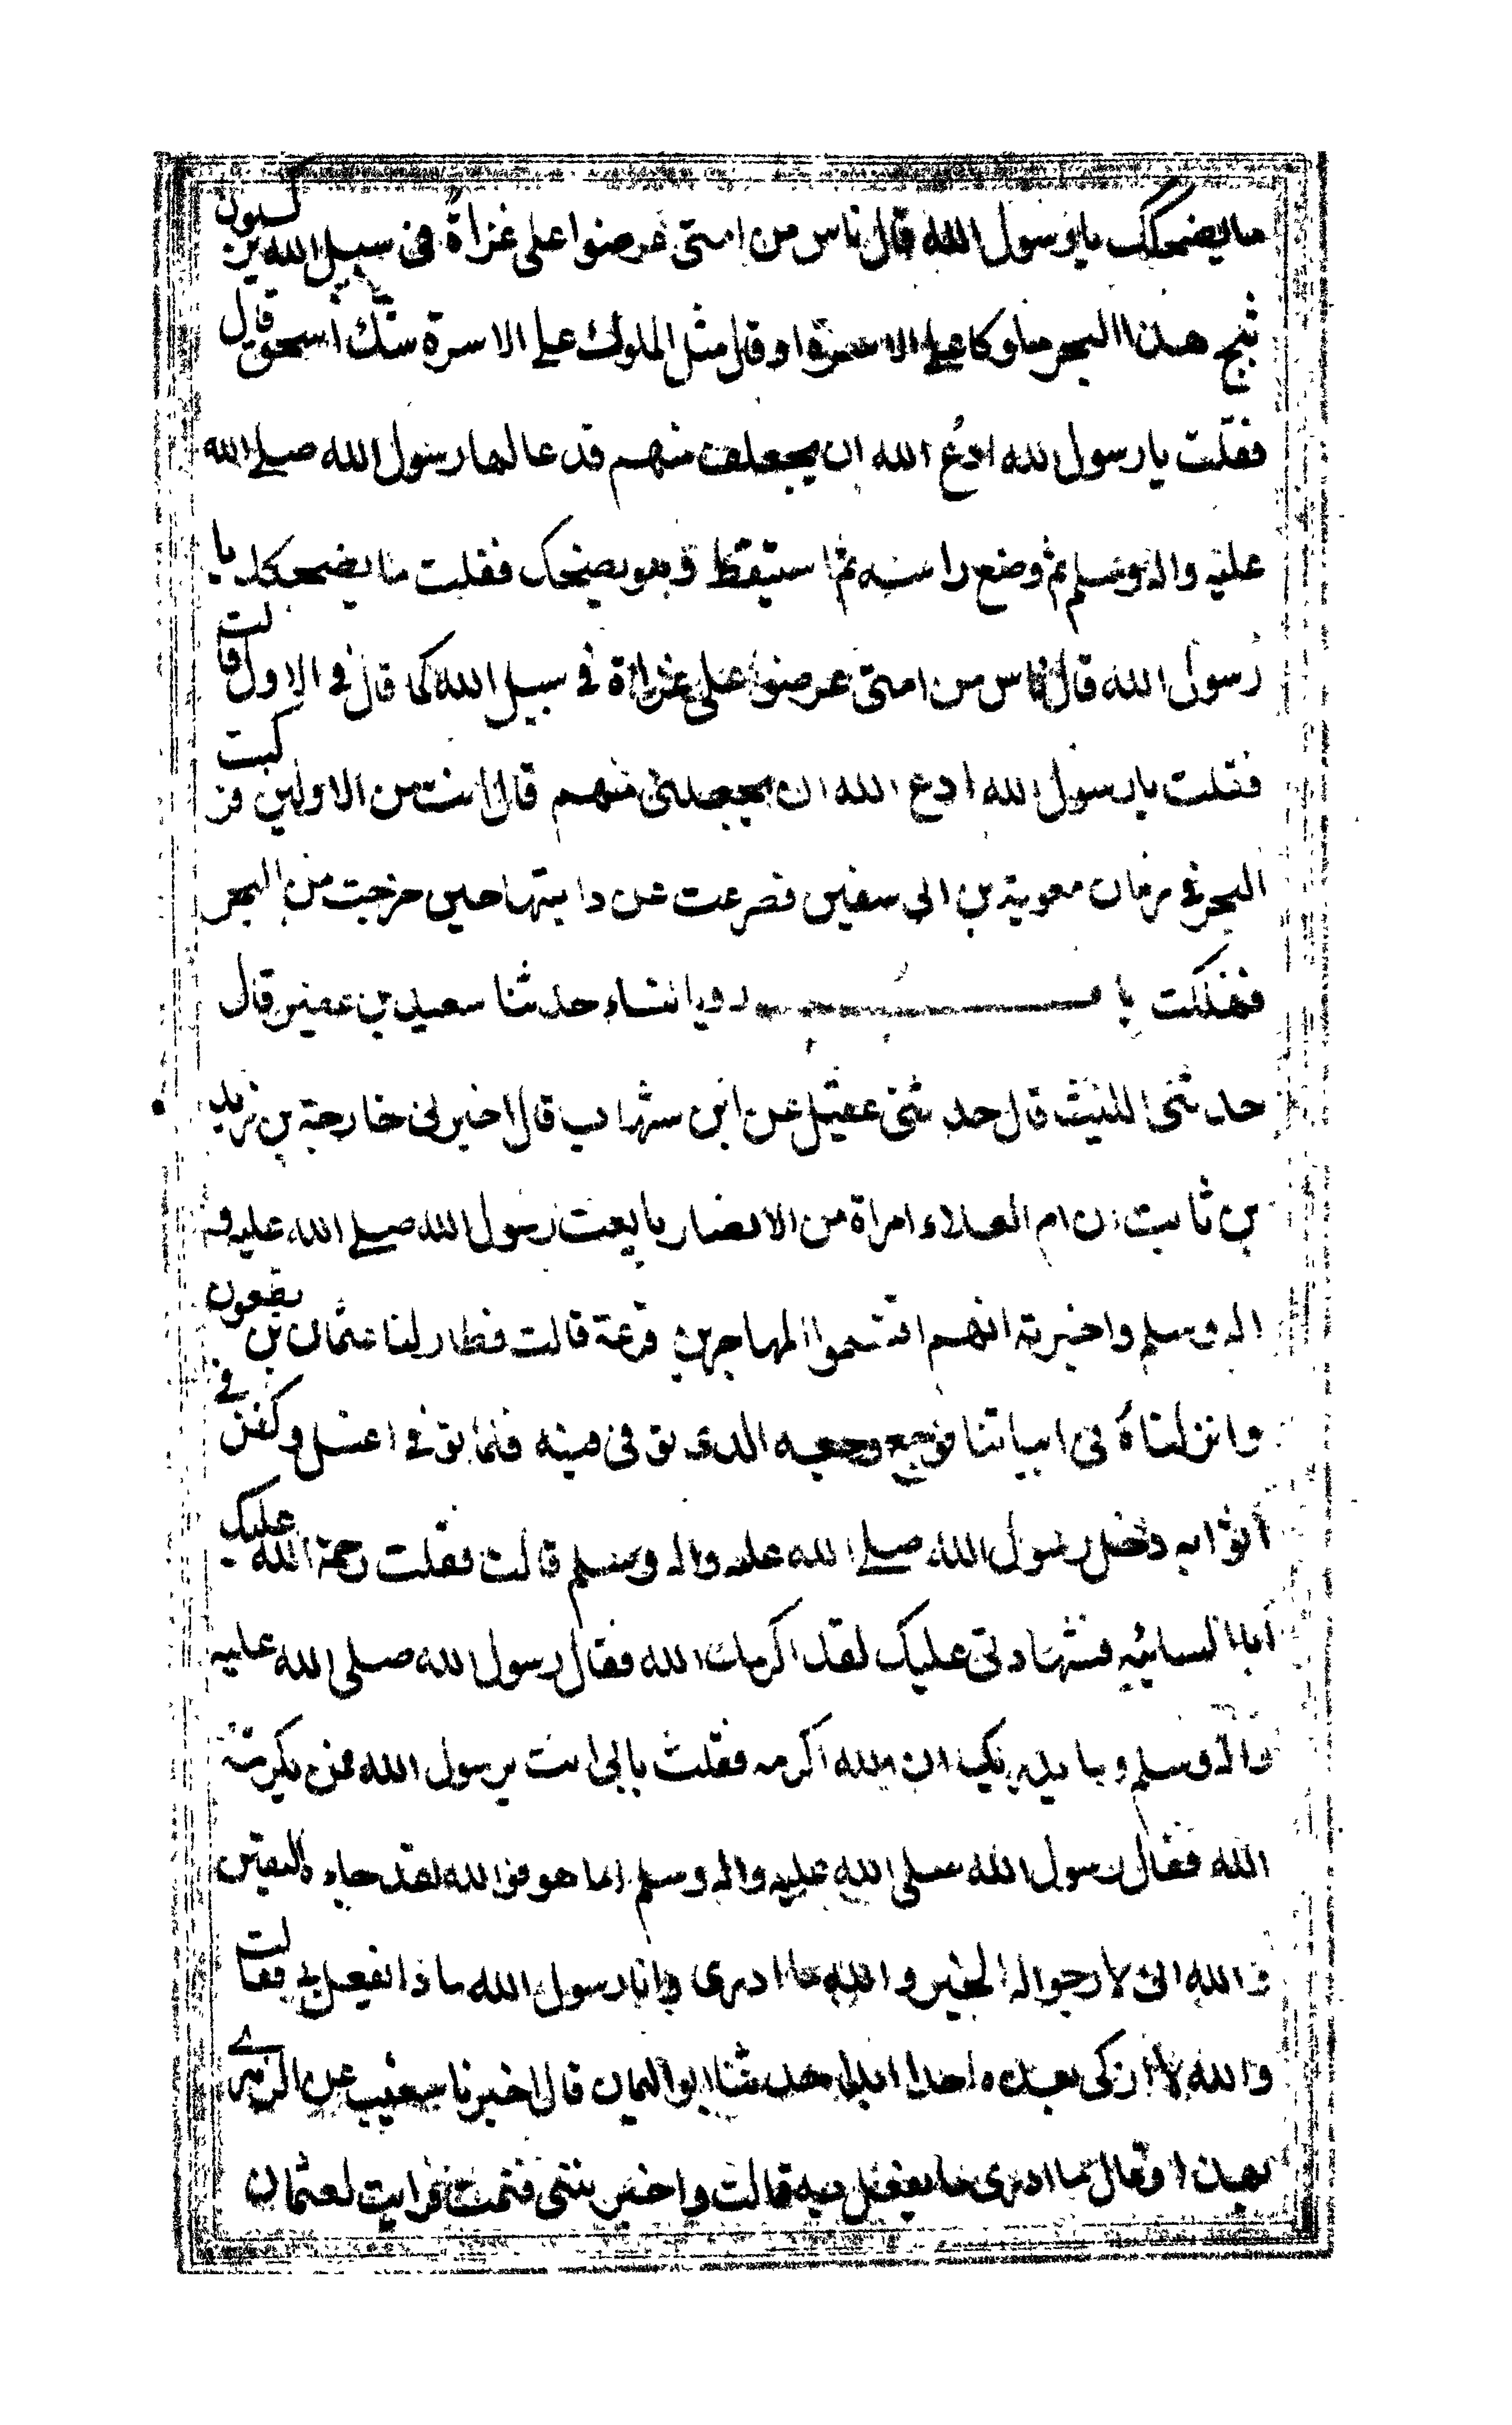 ما يضحكك يا رسول الله قال ناس من امتي عرضوا على غزاة في سبيل الله يركبون
ثبج هذا البحر ملوكا على الاسرة او قال مثل الملوك على الاسرة شك اسحق قال
فقلت يا رسول الله ادع الله ان يجعلني منهم فدعا لها رسول الله صلى الله
عليه واله وسلم ثم وضع راسه ثم استيقظ وهو يضحك فقلت ما يضحكك يا
رسول الله قال ناس من امتي عرضوا على غزاة في سبيل الله كما قال في الاول قالت
فقلت يا رسول الله ادع الله ان يجعلني منهم قال انت من الاولين فركبت
البحر في زمان معوية بن ابي سفين فصرعت عن دابتها حين خرجت من البحر
فهلكت باب رويا النساء حدثنا سعيد بن عفير قال
حدثني الليث قال حدثني عقيل عن ابن شهاب قال اخبرني خارجة بن زيد
بن ثابت ان ام العلاء امراة من الانصار بايعت رسول الله صلى الله عليه و
اله وسلم واخبرته انهم اقتسموا المهاجرين قرعة قالت فطار لنا عثمان بن مظعون
وانزلناه في ابياتنا فوجع وجعه الذي توفي فيه فلما توفي اغسل وكفن في
اثوابه دخل رسول الله صلى الله عليه واله وسلم قالت فقلت رحمة الله عليك
ابا السائب فشهادتي عليك لقد اكرمك الله فقال رسول الله صلى الله عليه
واله وسلم وما يدريك ان الله اكرمه فقلت بابي انت يرسول الله فمن يكرمه
الله فقال رسول الله صلى الله عليه واله وسلم اما هو فو الله لقد جاءه اليقين
والله اني لارجو اله الخير والله ما ادري وانا رسول الله ماذا يفعل بي فقالت
والله لا ازكي بعده احدا ابدا حدثنا ابو اليمان قال اخبرنا شعيب عن الزهري
بهذا وقال ما ادري ما يفعل به قالت واحزنني فنمت فرايت لعثمان